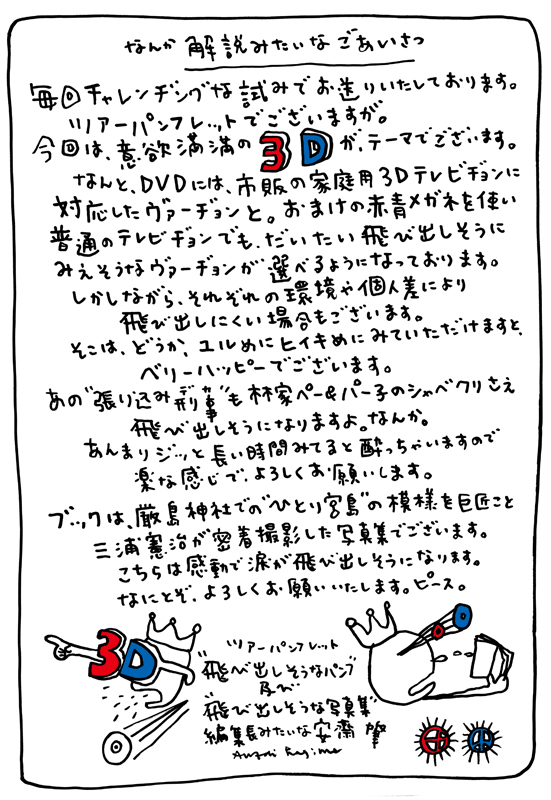 なんか 解説みたいな ごあいさつ
毎回チャレンヂングな試みでお送りいたしております。
ツアーパンフレットでございますが。
今回は、意欲満満の3Dが、テーマでございます。
なんと、DVDには、市販の家庭用3Dテレビヂョンに
対応したヴァーヂョンと。おまけの赤青メガネを使い
普通のテレビヂョンでも、だいたい飛び出しそうに
みえそうなヴァーヂョンが選べるようになっております。
しかしながら、それぞれの環境や個人差により
飛び出しにくい場合もございます。
そこは、どうか、ユルめにヒイキめにみていただけますと、
ベリーハッピーでございます。
あの"張り込み刑事"も林家ペー&パー子のシャベクリさえ
デカ
飛び出しそうになりますよ。なんか。
あんまりジッと長い時間みてると酔っちゃいますので
楽な感じで、よろしくお願いします。
ブックは、厳島神社での"ひとり宮島"の模様を巨匠こと
三浦憲治が密着撮影した写真集でございます。
こちらは感動で涙が飛び出しそうになります。
なにとぞ、よろしくお願いいたします。ピース。
3D
ツアーパンフレット
"飛び出しそうなパンフ"
及び
"飛び出しそうな写真集"
編集長みたいな 安齋肇
Anzai Hajime